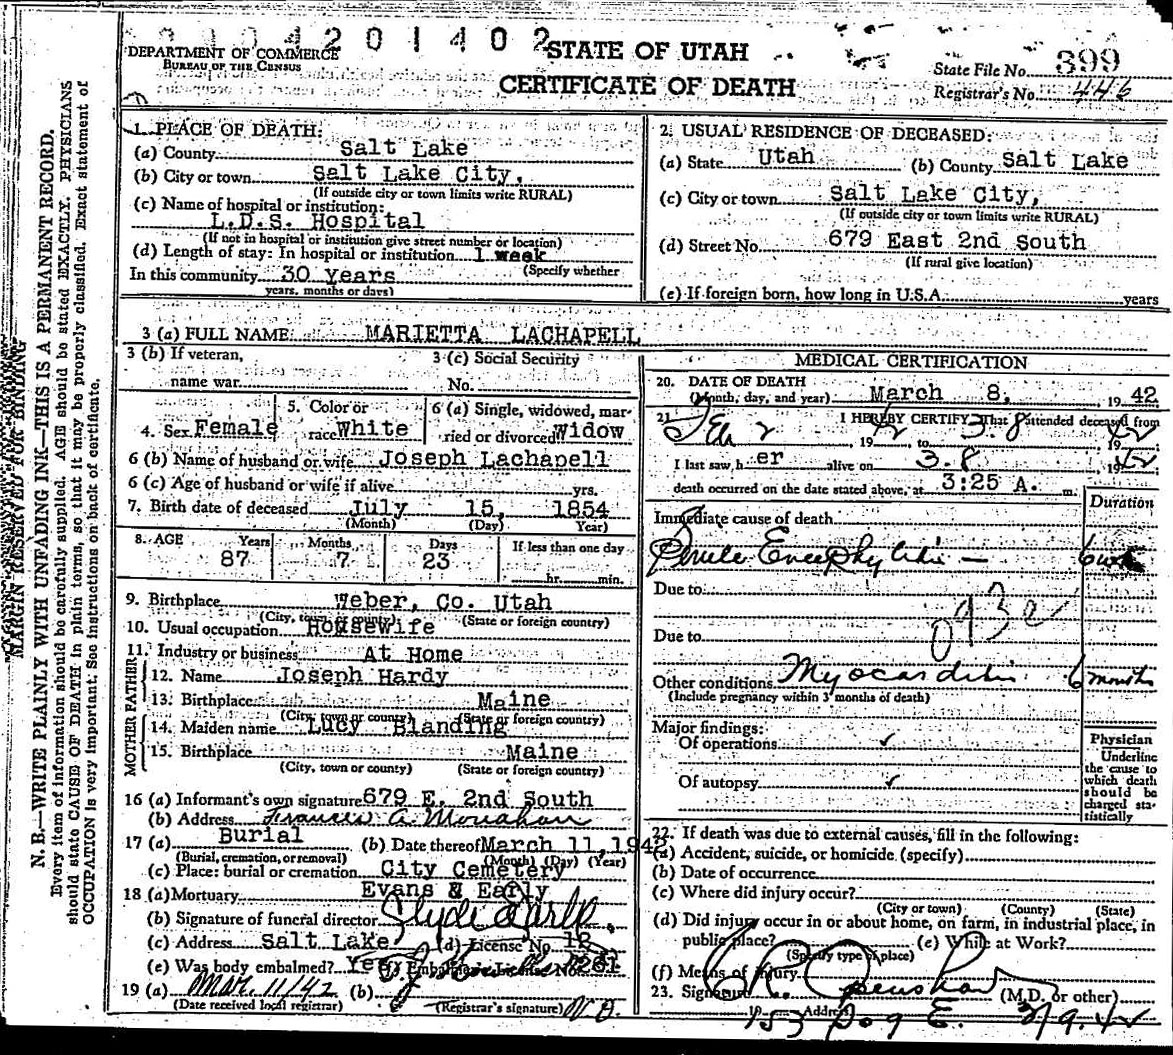 3 9 0 4 2 0 1 4 0 2
DEPARTMENT OF COMMERCE
BUREAU OF THE CENSUS
STATE OF UTAH
CERTIFICATE OF DEATH
State File No. 399
Registrar's No. 446
N. B.—WRITE PLAINLY WITH UNFADING INK—THIS IS A PERMANENT RECORD.
MARGIN RESERVED FOR BINDING
Every item of information should be carefully supplied. AGE should be stated EXACTLY. PHYSICIANS
should state CAUSE OF DEATH in plain terms, so that it may be properly classified. Exact statement of
OCCUPATION is very important. See instructions on back of certificate.
1. PLACE OF DEATH:
(a) County Salt Lake
(b) City or town Salt Lake City,
(If outside city or town limits write RURAL)
(c) Name of hospital or institution:
L.D.S. Hospital
(If not in hospital or institution give street number or location)
(d) Length of stay: In hospital or institution 1 week
(Specify whether
In this community 30 Years
years, months or days)
2. USUAL RESIDENCE OF DECEASED:
(a) State Utah (b) County Salt Lake
(c) City or town Salt Lake City,
(If outside city or town limits write RURAL)
(d) Street No. 679 East 2nd South
(If rural give location)
(e) If foreign born, how long in U.S.A. years
3 (a) FULL NAME MARIETTA LACHAPELL
3 (b) If veteran,
name war
3 (c) Social Security
No.
4. Sex Female
5. Color or
race White
6 (a) Single, widowed, mar-
ried or divorced Widow
6 (b) Name of husband or wife Joseph Lachapell
6 (c) Age of husband or wife if alive yrs.
7. Birth date of deceased July 15, 1854
(Month) (Day) Year)
8. AGE Years Months Days If less than one day
87 7 23 hr. min.
9. Birthplace Weber, Co. Utah
(City, town or county) (State or foreign country)
10. Usual occupation Housewife
11. Industry or business At Home
MOTHER FATHER
12. Name Joseph Hardy
13. Birthplace Maine
(City, town or county) (State or foreign country)
14. Maiden name Lucy Blanding
15. Birthplace Maine
(City, town or county) (State or foreign country)
16 (a) Informant's own signature 679 E. 2nd South
(b) Address Frances A. Monahan
17 (a) Burial (b) Date thereof March 11, 1942
(Burial, cremation, or removal) (Month) (Day) (Year)
(c) Place: burial or cremation City Cemetery
18 (a) Mortuary Evans & Early
(b) Signature of funeral director Clyde Earle
(c) Address Salt Lake (d) License No. 12
(e) Was body embalmed? Yes (f) Embalmer's License No. 261
19 (a) Mar. 11/42 (b)
(Date received local registrar) (Registrar's signature)
MEDICAL CERTIFICATION
20. DATE OF DEATH
(Month, day, and year) March 8, 1942
21. I HEREBY CERTIFY That I attended deceased from
Feb 2, 1942 to 3.8 1942
I last saw her alive on 3.8 1942
death occurred on the date stated above, at 3:25 A. m.
Duration
Immediate cause of death
6
Due to
093c
Due to
Other conditions Myocarditis 6 months
(Include pregnancy within 3 months of death)
Major findings:
Of operations ✓
Of autopsy ✓
Physician
Underline
the cause to
which death
should be
charged sta-
tistically
22. If death was due to external causes, fill in the following:
(a) Accident, suicide, or homicide (specify)
(b) Date of occurrence
(c) Where did injury occur?
(City or town) (County) (State)
(d) Did injury occur in or about home, on farm, in industrial place, in
public place? (e) While at Work?
(Specify type of place)
(f) Means of injury
23. Signature (M.D. or other)
Address E. 3/9.42